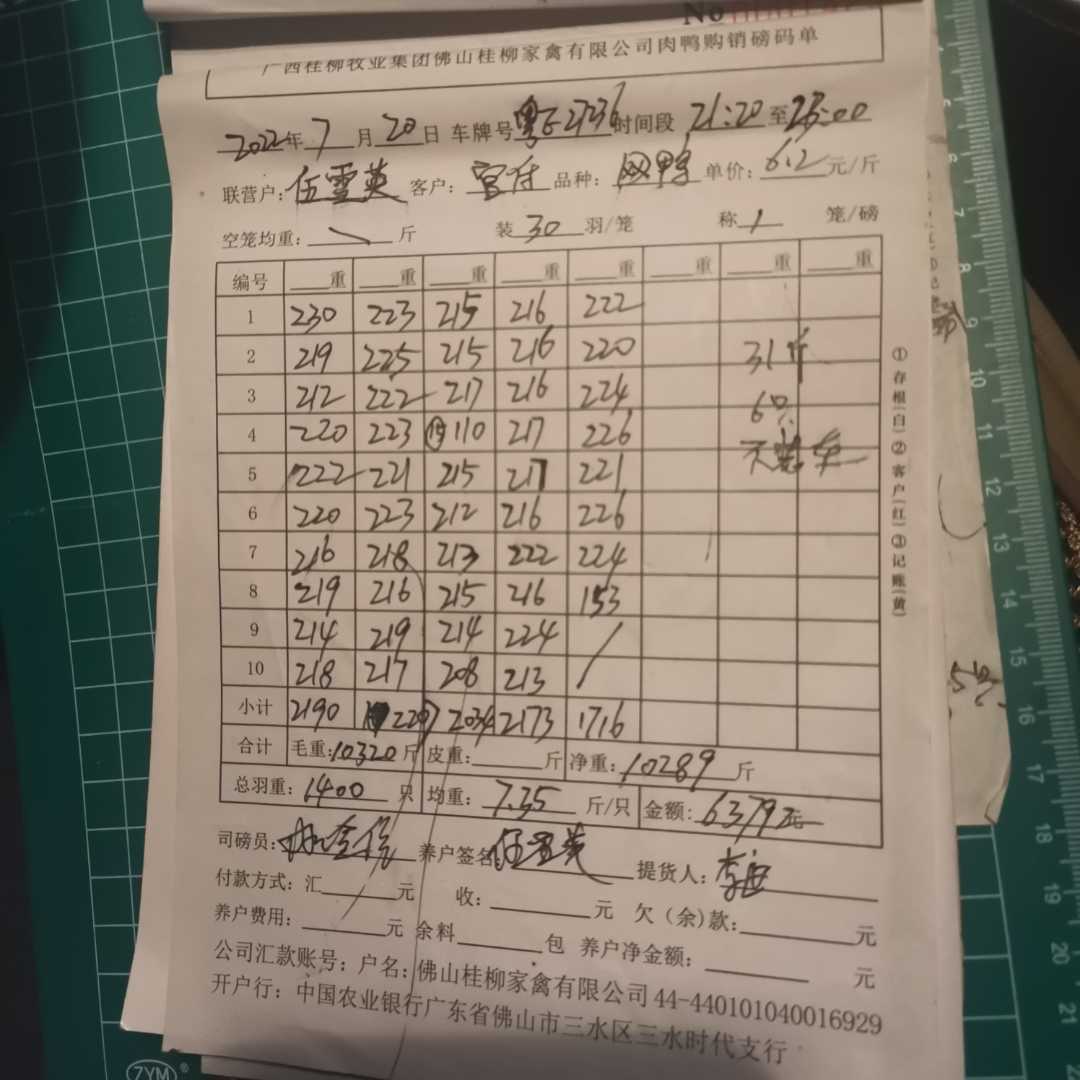 No
广西桂柳牧业集团佛山桂柳家禽有限公司肉鸭购销磅码单
2022年7月20日 车牌号 时间段 21:20至23:00
联营户:伍雪英 客户: 品种:网鸭 单价:6.2元/斤
空笼均重: 斤 装30羽/笼 称1笼/磅
编号 重 重 重 重 重 重 重 重
1 230 223 215 216 222
2 219 225 215 216 220 31斤
3 212 222 217 216 224 6只
4 220 223 110 217 226
5 222 221 215 217 221
6 220 223 212 216 226
7 216 218 213 222 224
8 219 216 215 216 153
9 214 219 214 224 /
10 218 217 208 213
小计 2190 2207 2034 2173 1716
合计 毛重:10320斤 皮重: 斤 净重:10289斤
总羽重:1400只 均重:7.35斤/只 金额:6379元
司磅员: 养户签名:伍雪英 提货人:
付款方式:汇 元 收: 元 欠(余)款: 元
养户费用: 元 余料 包 养户净金额: 元
公司汇款账号:户名:佛山桂柳家禽有限公司44-440101040016929
开户行:中国农业银行广东省佛山市三水区三水时代支行
①存根(白)②客户(红)③记账(黄)
6
7
8
9
10
11
12
13
14
15
16
17
18
19
20
21
ZYM®